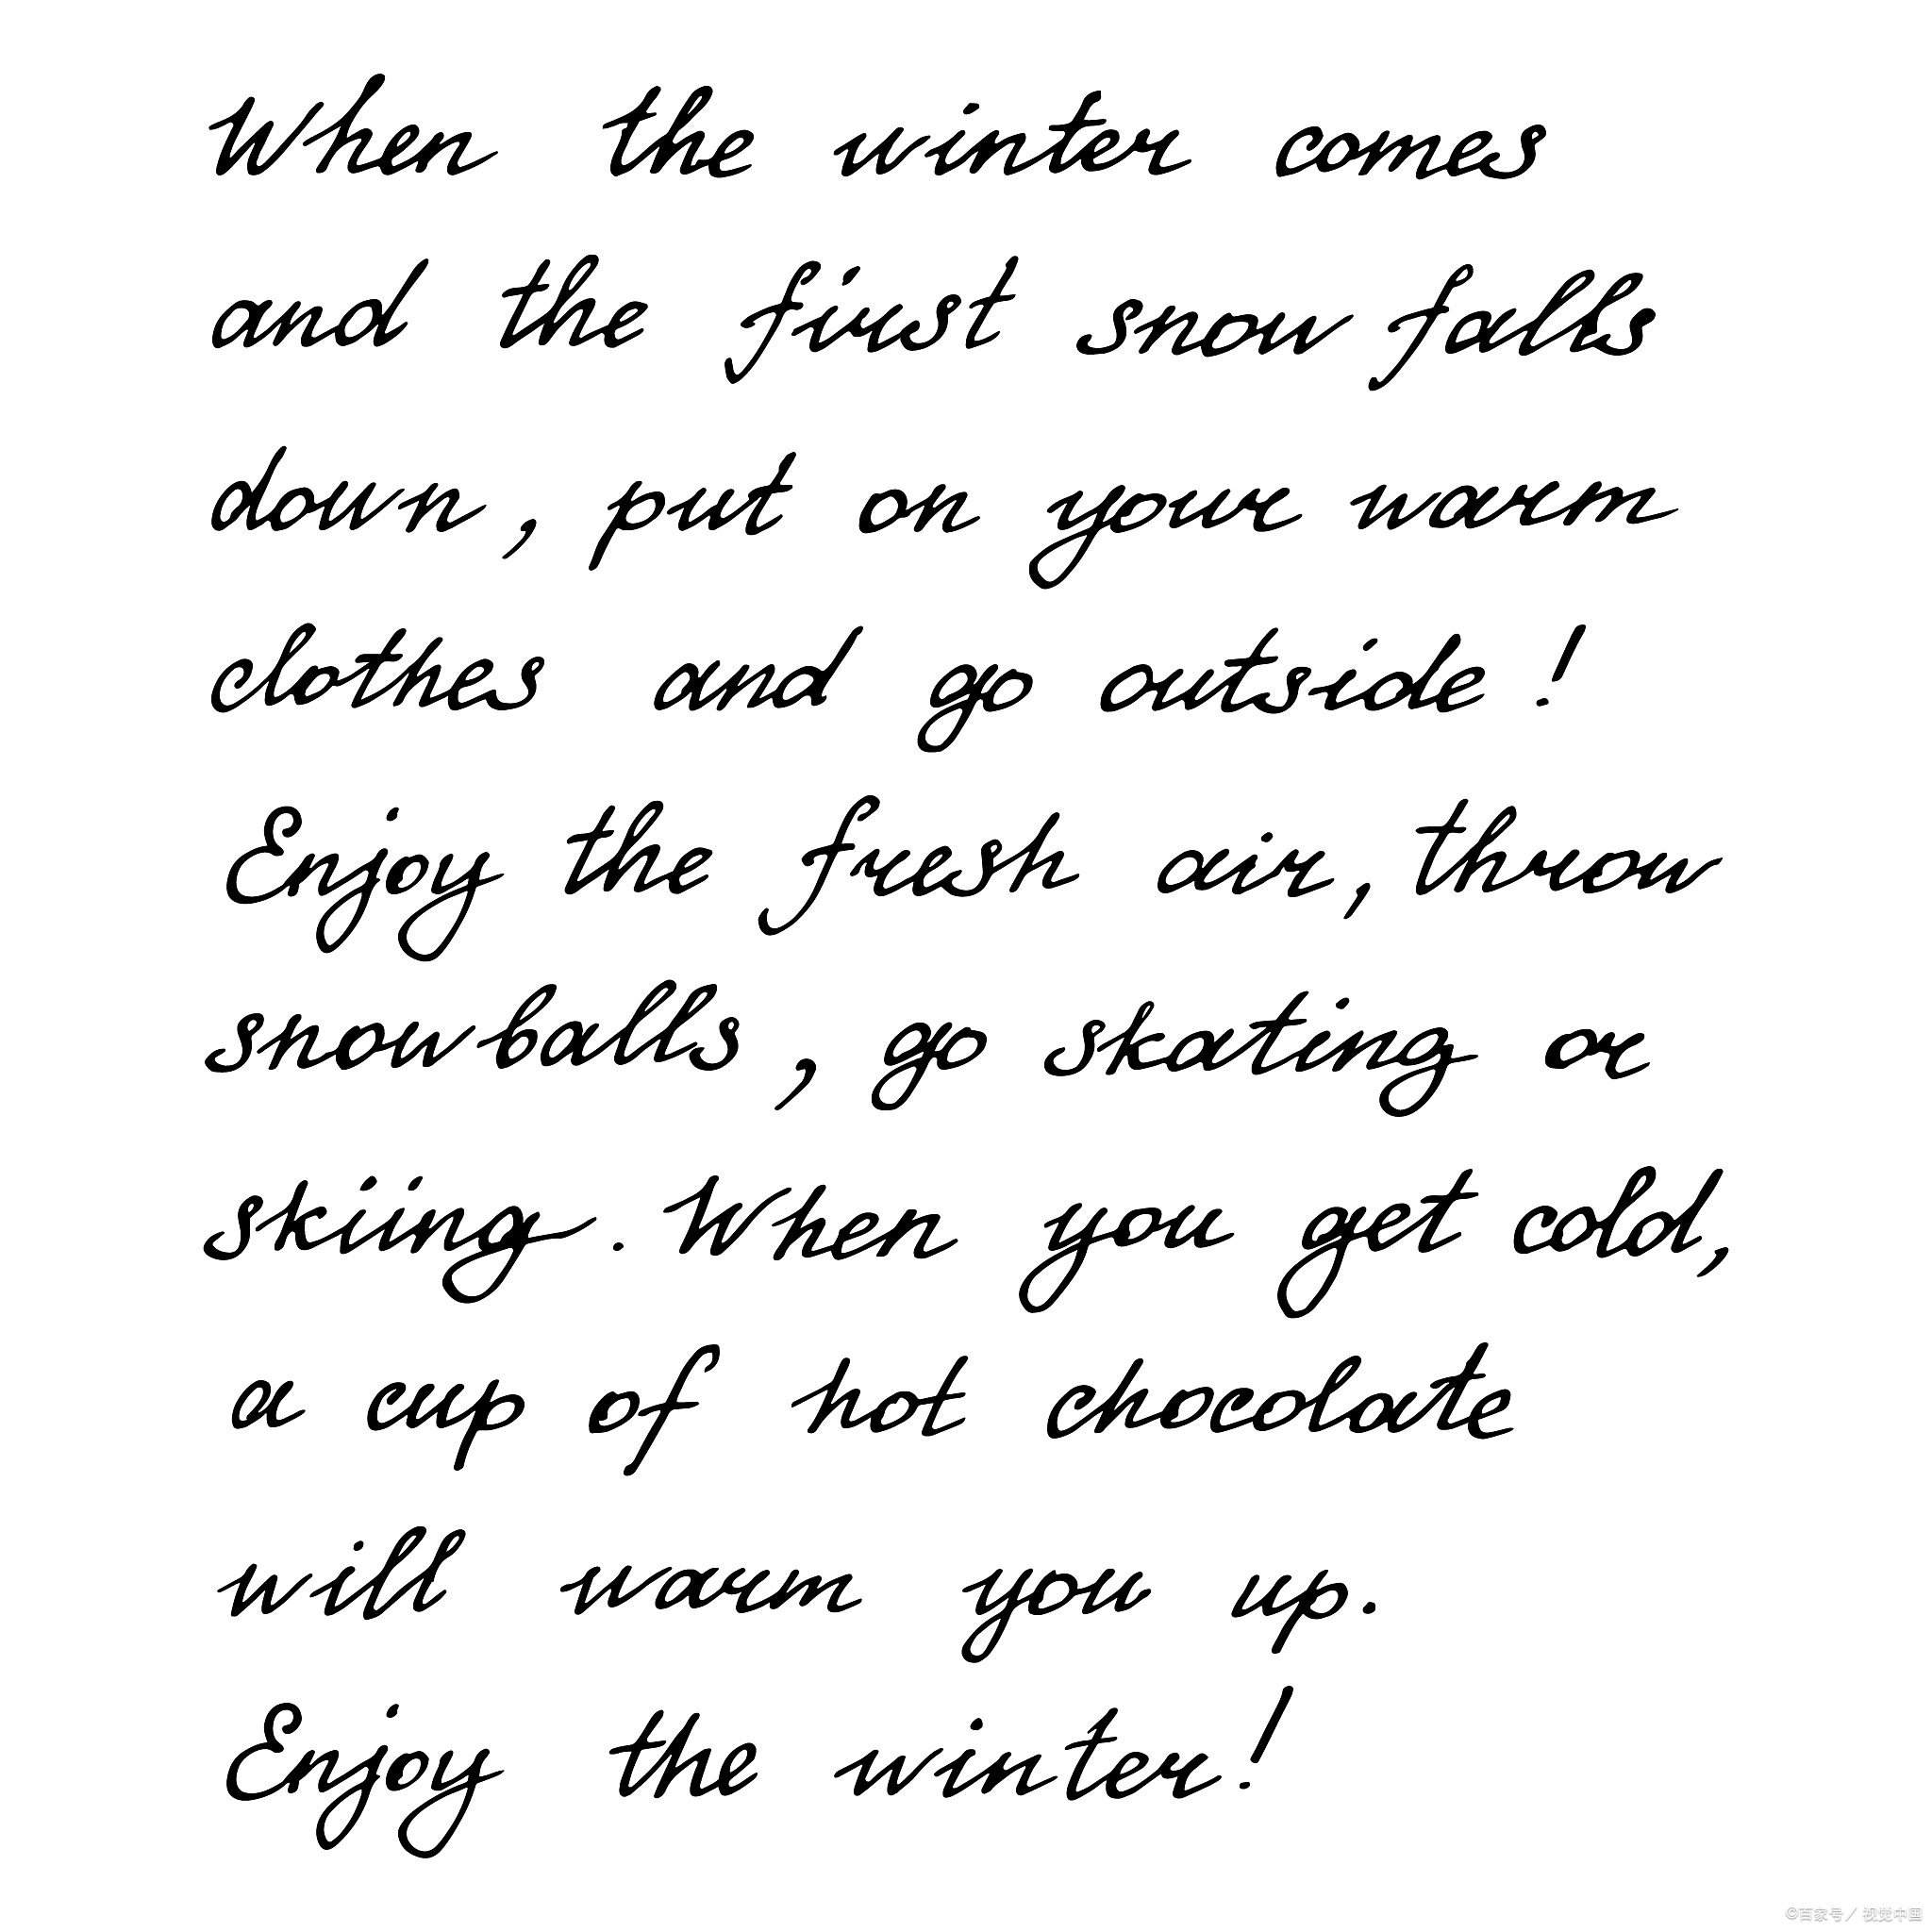 When the winter comes
and the first snow falls
down, put on your warm
clothes and go outside!
Enjoy the fresh air, throw
snow-balls, go skating or
skiing. When you get cold,
a cup of hot chocolate
will warm you up.
Enjoy the winter!
©百家号／视觉中国